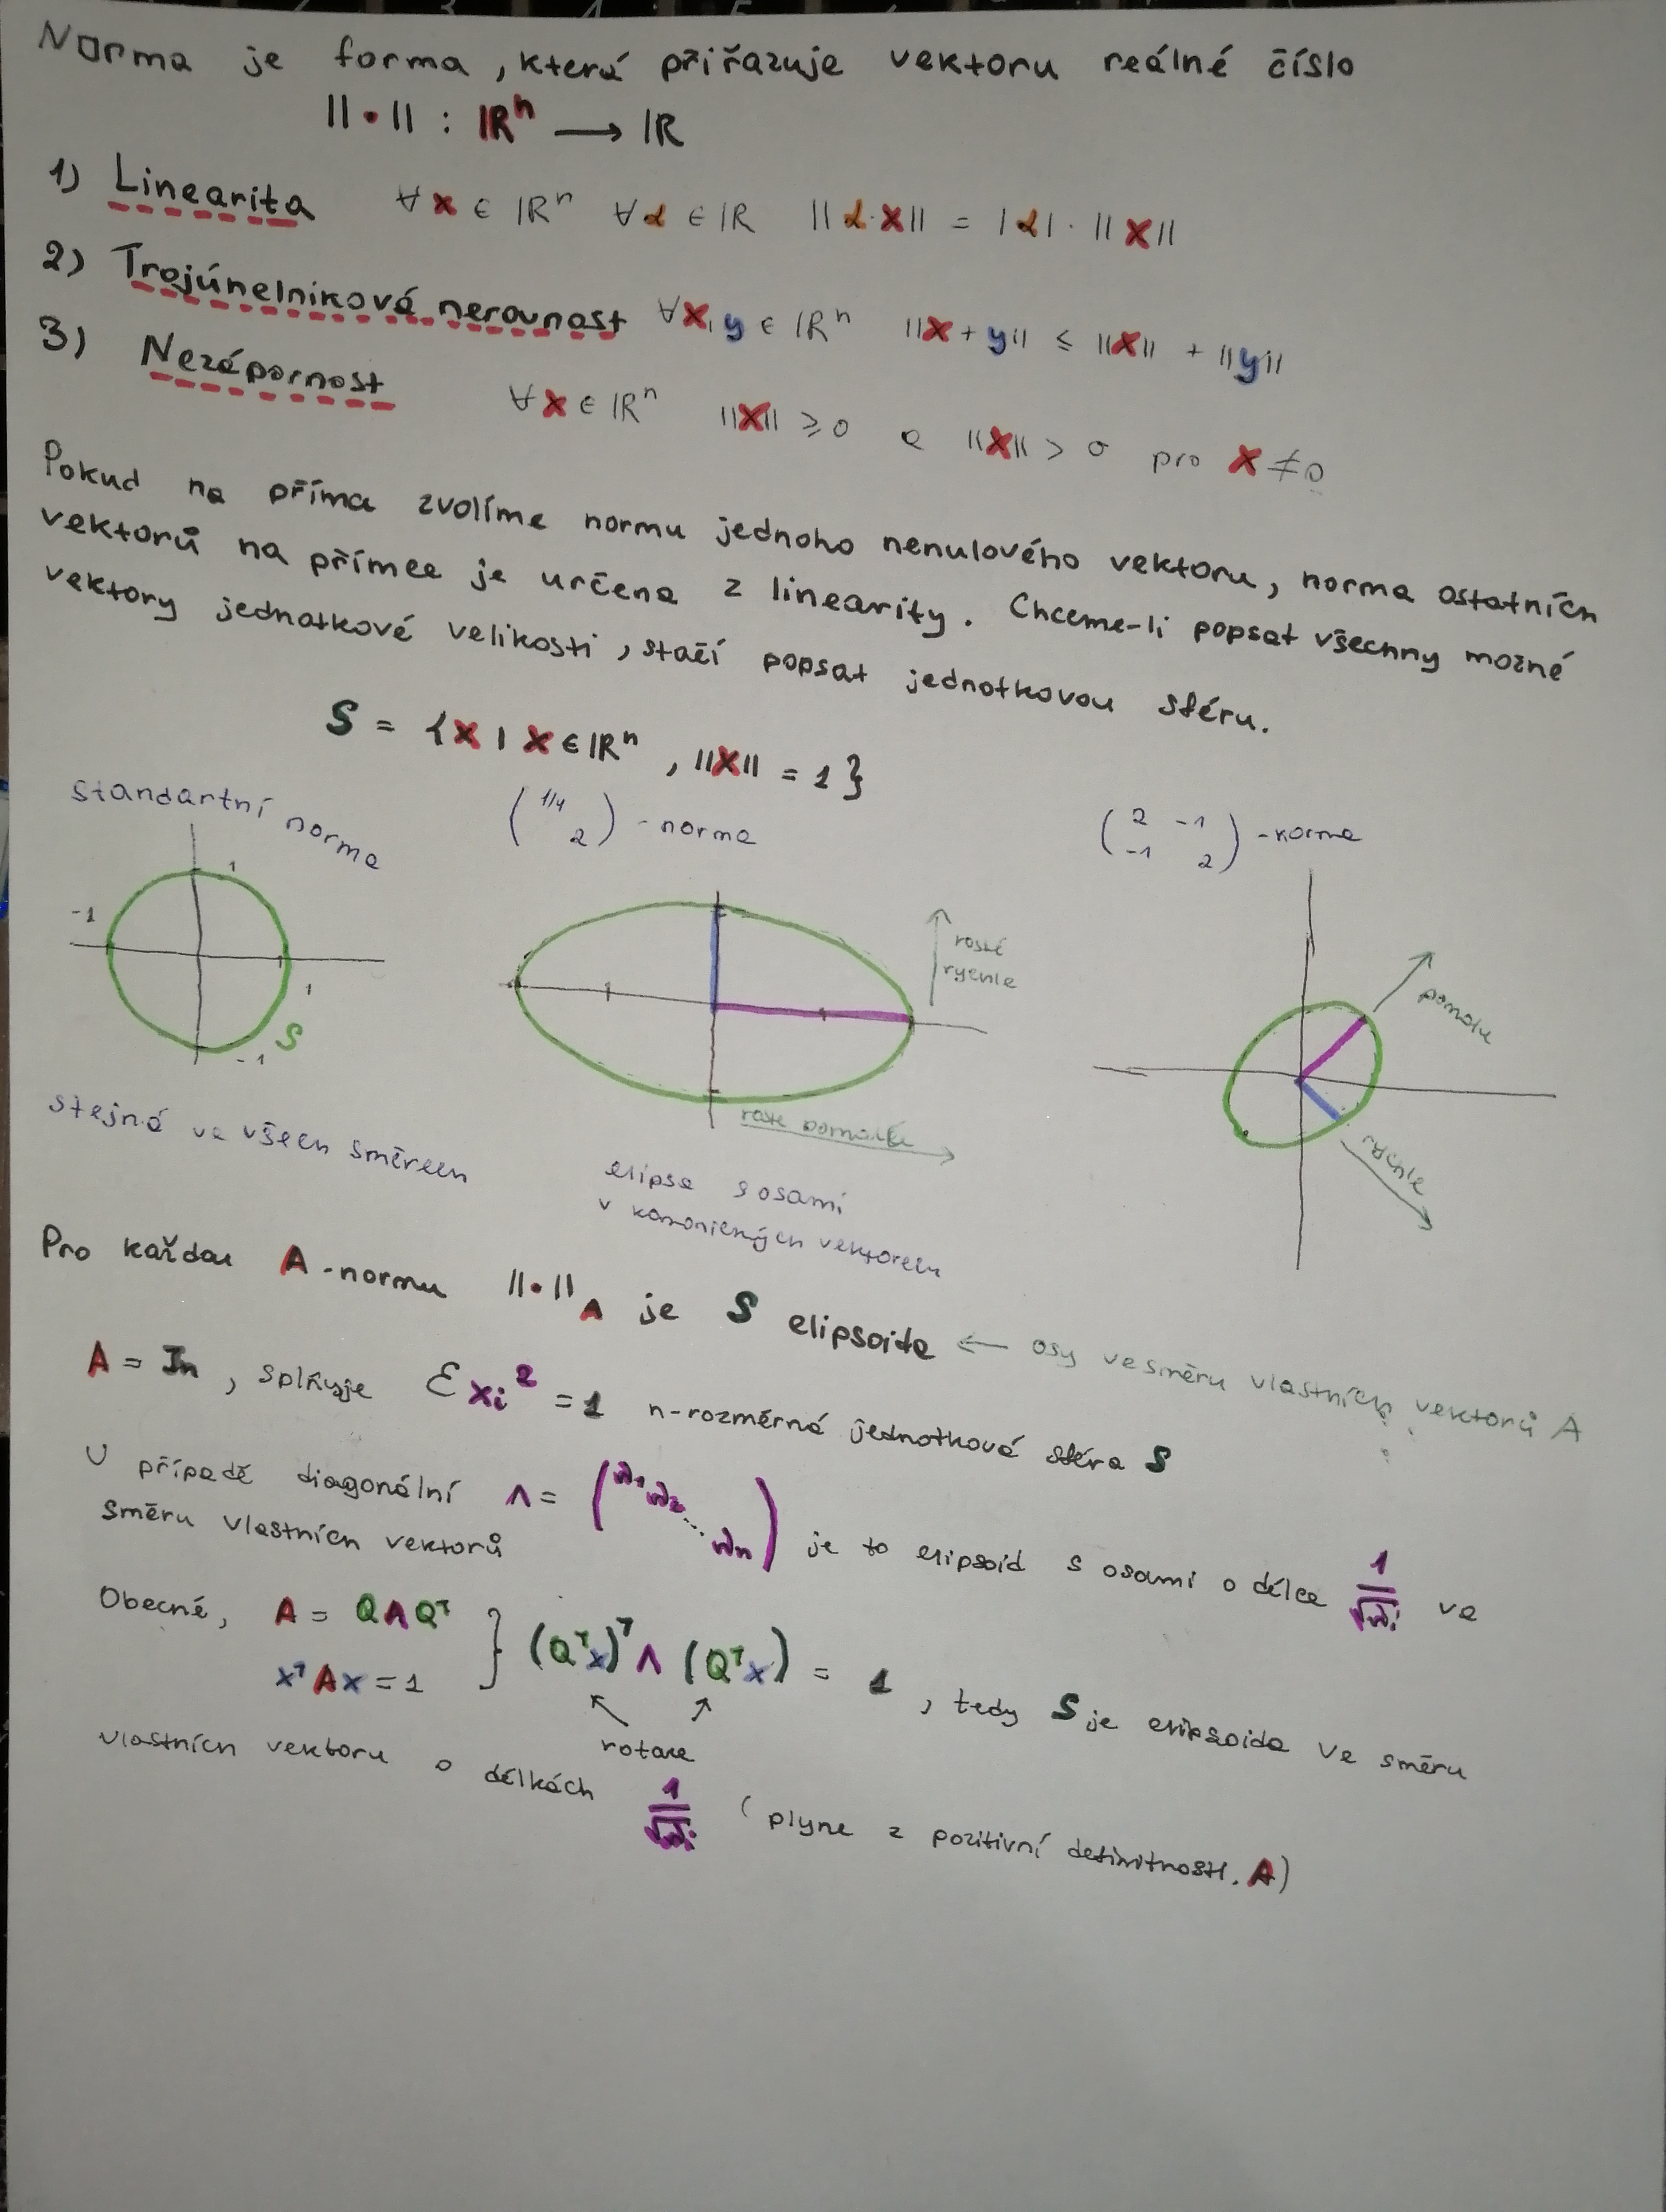 Norma je forma, která přiřazuje vektoru reálné číslo
||•|| : ℝⁿ ⟶ ℝ
1) Linearita ∀x ∈ ℝⁿ ∀α ∈ ℝ ||α·x|| = |α|·||x||
2) Trojúhelníková nerovnost ∀x,y ∈ ℝⁿ ||x+y|| ≤ ||x|| + ||y||
3) Nezápornost ∀x ∈ ℝⁿ ||x|| ≥ 0 a ||x|| > 0 pro x ≠ 0
Pokud na příma zvolíme normu jednoho nenulového vektoru, norma ostatních
vektorů na přímce je určena z linearity. Chceme-li popsat všechny možné
vektory jednotkové velikosti, stačí popsat jednotkovou sféru.
S = {x | x ∈ ℝⁿ, ||x|| = 1}
standartní norma
(1/4 2) - norma
(2 -1 -1 2) - norma
1
-1
1
-1
S
1
roste rychle
roste pomalu
pomalu
rychle
stejná ve všech směrech
elipsa s osami
v kanonických vektorech
Pro každou A-normu ||•||A je S elipsoida ← osy ve směru vlastních vektorů A
A = In, splňuje Σxi² = 1 n-rozměrná jednotková sféra S
V případě diagonální Λ = (λ1 λ2 ... λn) je to elipsoid s osami o délce 1/√λi ve
směru vlastních vektorů
Obecně, A = QΛQᵀ
xᵀAx = 1 } (Qᵀx)ᵀ Λ (Qᵀx) = 1, tedy S je elipsoida ve směru
rotace
vlastních vektoru o délkách 1/√λi (plyne z pozitivní definitnosti A)